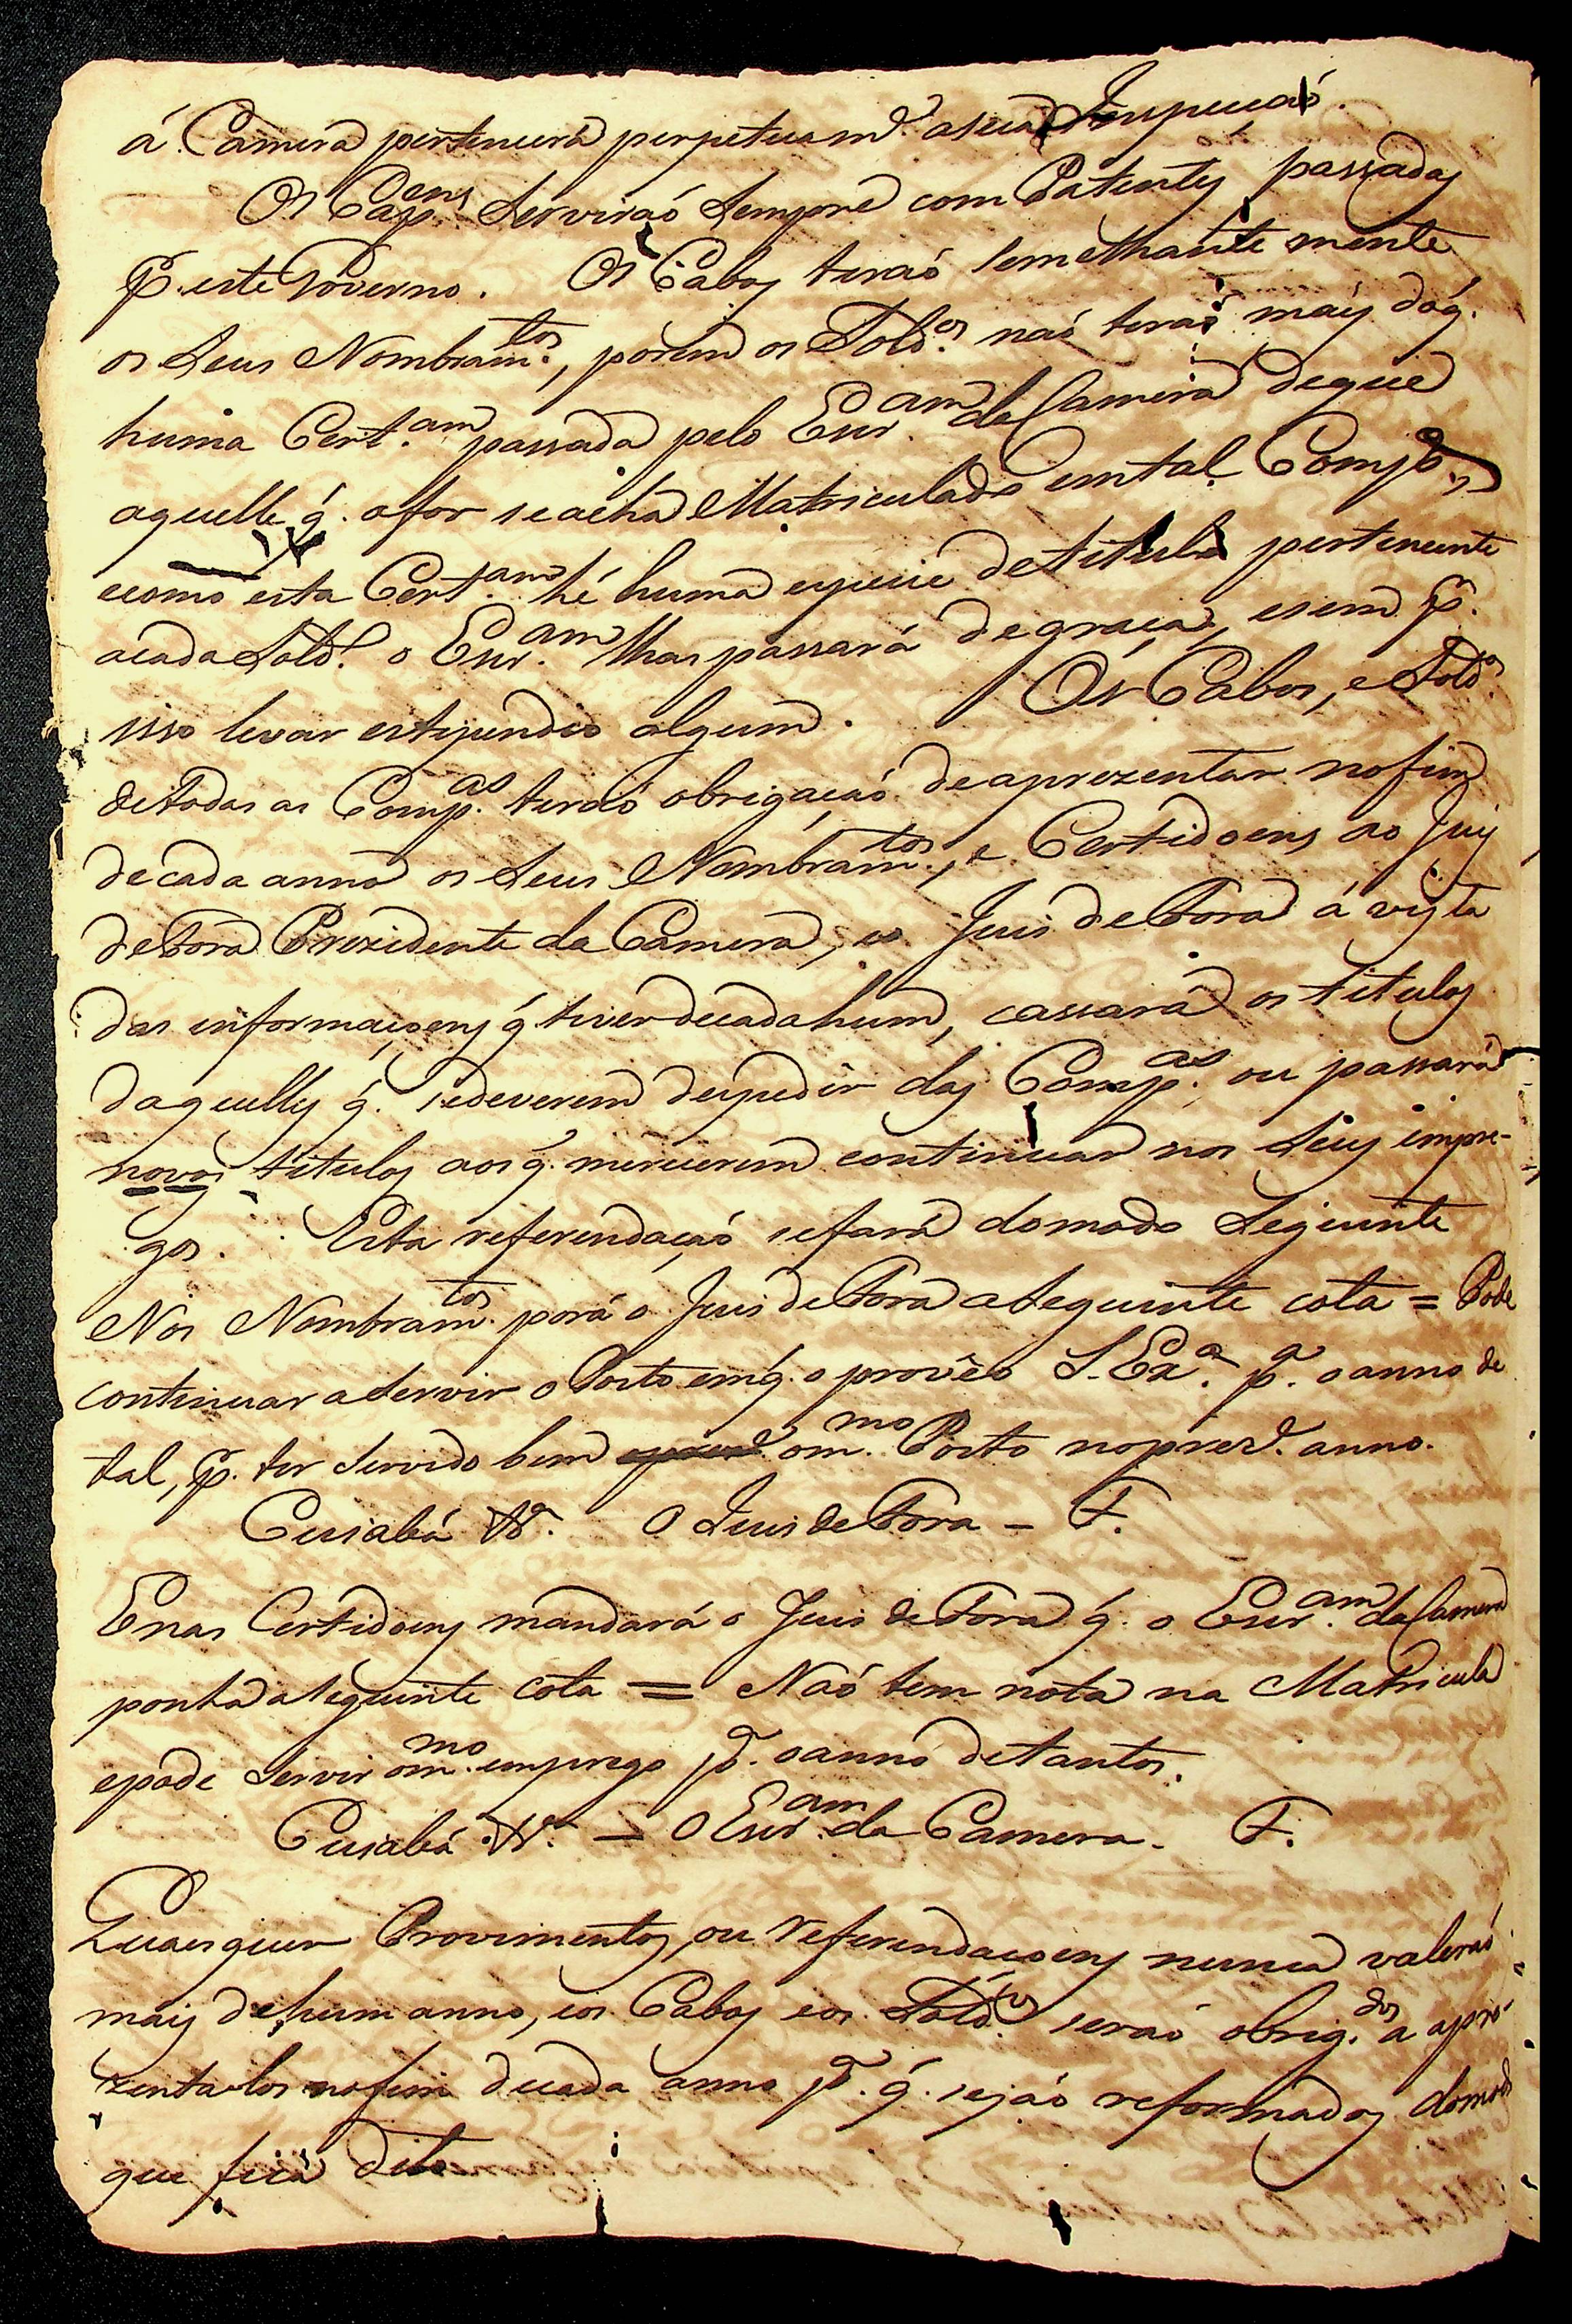 á Camera pertencerá perpetuam.e asua Inspecçaõ.
Os Cap.ens Serviraõ Sempre com Patentes passadas
p. este Governo. Os Cabos teraõ semelhante mente
os Seus Nombram.tos, porem os Sold.os naõ teraõ mais doq.
huma Cert.am passada pelo Escr.am da Camera deque
aquelle q. afor seacha Matriculado emtal Comp.a,
ecomo esta Cert.am hé huma especie detitulo pertencente
acada Sold.o o Escr.am lhas passará degraça, esem p.
isso levar estipendio algum. Os Cabos, e Sold.os
detodas as Comp.as teraõ obrigaçaõ deaprezentar nofim
decada anno os Seus Nombram.tos, e Certidoens ao Juis
deFora Prezidente da Camera, eo Juis deFora á vista
das informaçoens q tiver decadahum, cassará os titulos
daquelles q. sedeverem despedir das Comp.as ou passará
novos titulos aos q. merecerem continuar nos Seus impre-
gos. Esta referendaçaõ sefará domodo Seguinte
Nos Nombram.tos porá o Juis deFora aSeguinte cota = Pode
continuar aServir o Posto emq. o provêo S. Ex.a p.a o anno de
tal, p. ter Servido bem om.mo Posto noprez.e anno.
Cuiabá &.a O Juis deFora - F.
Enas Certidoens mandará o Juis deFora q. o Escr.am da Camera
ponha aSeguinte cota = Naõ tem nota na Matricula
epode Servir om.mo emprego p.a oanno detantos.
Cuiabá &.a = O Escr.am da Camera. F.
Quaesquer Provimentos, ou referendaçoens nunca valeraõ
mais dehum anno, eos Cabos eos Sold.os seraõ obrig.dos a apre-
zentalos nofim decada anno p.a q. sejaõ reformados domodo
que fica dito